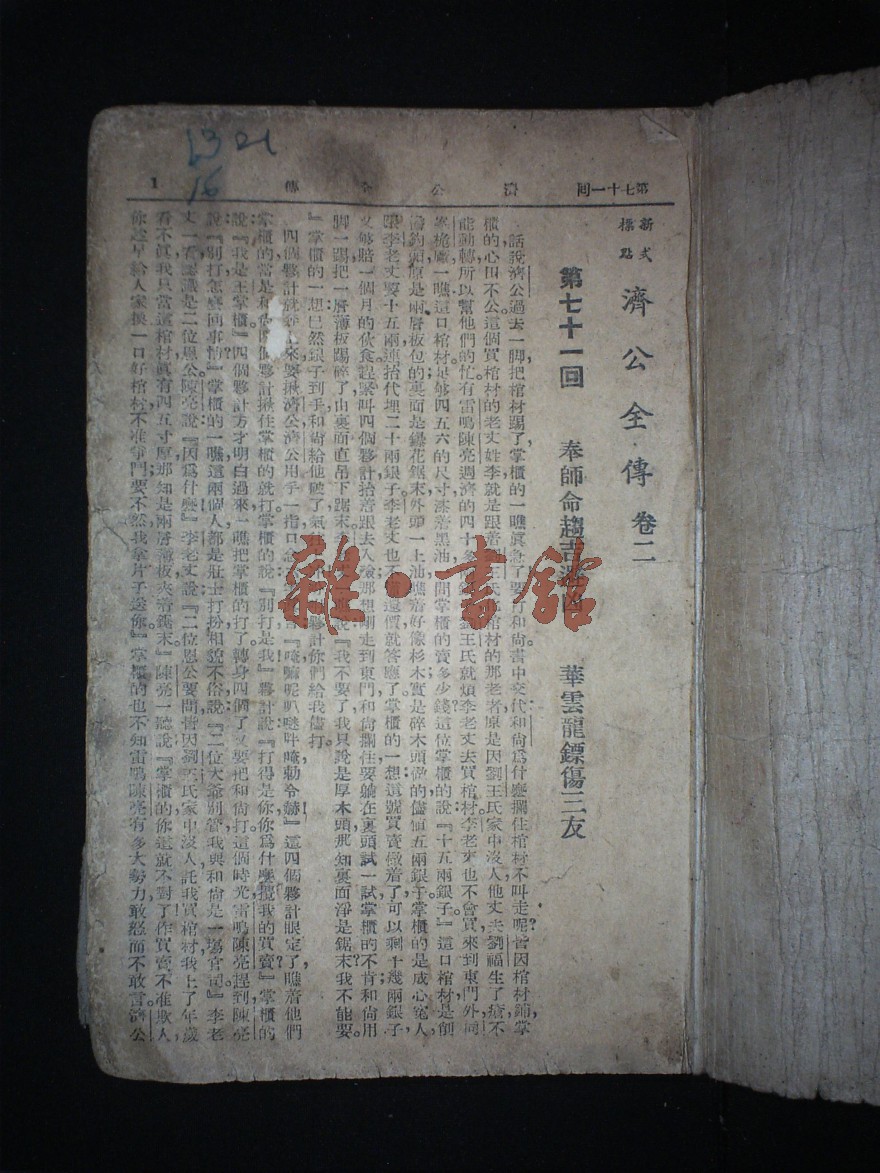 第七十一回 濟公全傳 1
新式
標點
濟公全傳 卷二
第七十一回 奉師命趨吉 華雲龍鏢傷三友
話說濟公過去一脚把棺材踢了掌櫃的一瞧眞急了要打和尚書中交代和尚爲什麽攔住棺材不叫走呢?皆因棺材鋪掌
櫃的心田不公這個買棺材的老丈姓李就是跟着劉王氏買棺材的那老者原是因劉王氏家中沒人他丈夫劉福生了瘡不
能動轉所以幫他們的忙有雷鳴陳亮週濟的四十多 王氏就煩李老丈去買棺材李老丈也不會買來到東門外同
峯桅廠一瞧這口棺材足够四五六的尺寸漆着黑油 問掌櫃的賣多少錢?這位掌櫃的說『十五兩銀子。』這口棺材是
鉤頭原是兩層板包的裏面是鏍花鋸末外頭一上油瞧着好像杉木實是碎木頭做的儘值五兩銀子掌櫃的是成心寃人
跟李老丈要十五兩連抬代埋二十兩銀子李老丈也不 還價就答應了掌櫃的一想這號買賣做着了可以剩十幾兩銀子
又够賠一個月的伙食趕緊叫四個夥計抬着跟去入殮那想剛走到東門和尚攔住要躺在裏頭試一試掌櫃的不肯和尚用
脚一踢把一層薄板踢碎了由裏面直吊下鋸末 說『我不要了我只說是厚木頭那知裏面淨是鋸末我不能要。
』掌櫃的一想已然銀子到手和尚給他破了 夥計你們給我儘打。
四個夥計就 來要揪濟公濟公用手一指口念 『唵嘛呢叭𠺗吽唵勅令赫』這四個夥計眼定了瞧着他們
掌櫃的當是和尚四個夥計揪住掌櫃的就打掌櫃的說『別打是我』夥計說『打得是你你爲什麽攪我的買賣?』掌櫃的
說『我是王掌櫃』四個夥計方才明白過來一瞧把掌櫃的打了轉身四個了又要把和尚打這個時光雷鳴陳亮趕到陳亮
說『別打怎麽回事情?』掌櫃的一瞧這兩個人都是壯士打扮相貌不俗說『二位大爺別管我與和尚是一塲官司』李老
丈一看認識是二位恩公陳亮說『因爲什麽』李老丈說『二位恩公要問皆因劉王氏家中沒人託我買棺材我上了年歲
看不眞我只當這棺材眞有四五寸厚那知是兩層薄板夾着鋸末』陳亮一聽說『掌櫃的你這就不對了作買賣不准欺人
你趁早給人家換一口好棺材不准爭鬥要不然我拿片子送你』掌櫃的也不知雷鳴陳亮有多大勢力敢怒而不敢言濟公
雜·書館